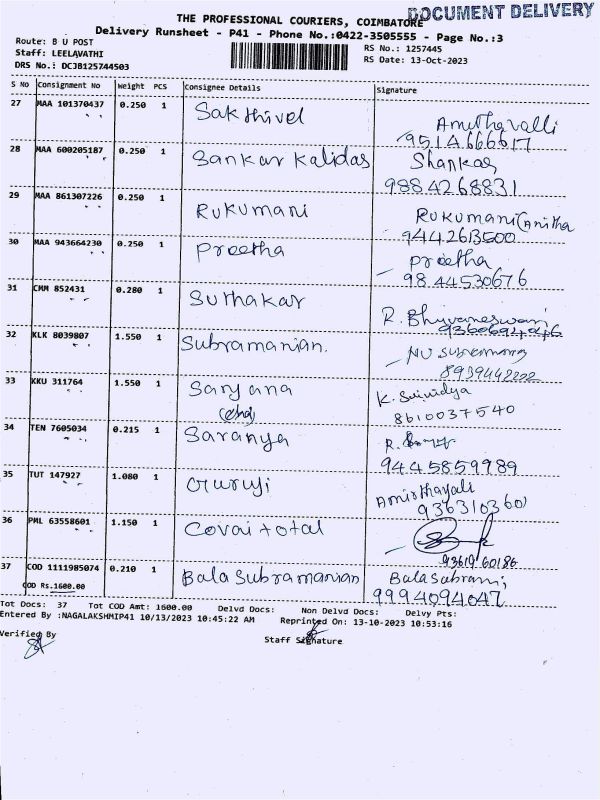 DOCUMENT DELIVERY
THE PROFESSIONAL COURIERS, COIMBATORE
Delivery Runsheet - P41 - Phone No.:0422-3505555 - Page No.:3
Route: B U POST
RS No.: 1257445
Staff: LEELAVATHI
RS Date: 13-Oct-2023
DRS No.: DCJB125744503
S No Consignment No Weight PCS Consignee Details Signature
27 MAA 101370437 0.250 1 Sakthivel Amuthavalli
9514666617
28 MAA 600205187 0.250 1 Sankar Kalidas Shankar
9884268831
29 MAA 861307226 0.250 1 Rukumani Rukumani (Anitha
9442613500
30 MAA 943664230 0.250 1 Preetha Preetha
9844530676
31 CMM 852431 0.280 1 Suthakar R. Bhuvaneswari
32 KLK 8039807 1.550 1 Subramanian.
8939442222
33 KKU 311764 1.550 1 Saryana K. Srinidya
8610037540
34 TEN 7605034 0.215 1 Saranya R.
9445859989
35 TUT 147927 1.080 1 Guruji Amirthavali
9363103601
36 PML 63558601 1.150 1 Covai total
93619 60186
37 COD 1111985074 0.210 1 Balasubramanian Balasubrami
COD Rs.1600.00 9994094047
Tot Docs: 37 Tot COD Amt: 1600.00 Delvd Docs: Non Delvd Docs: Delvy Pts:
Entered By :NAGALAKSHMIP41 10/13/2023 10:45:22 AM Reprinted On: 13-10-2023 10:53:16
Verified By
Staff Signature